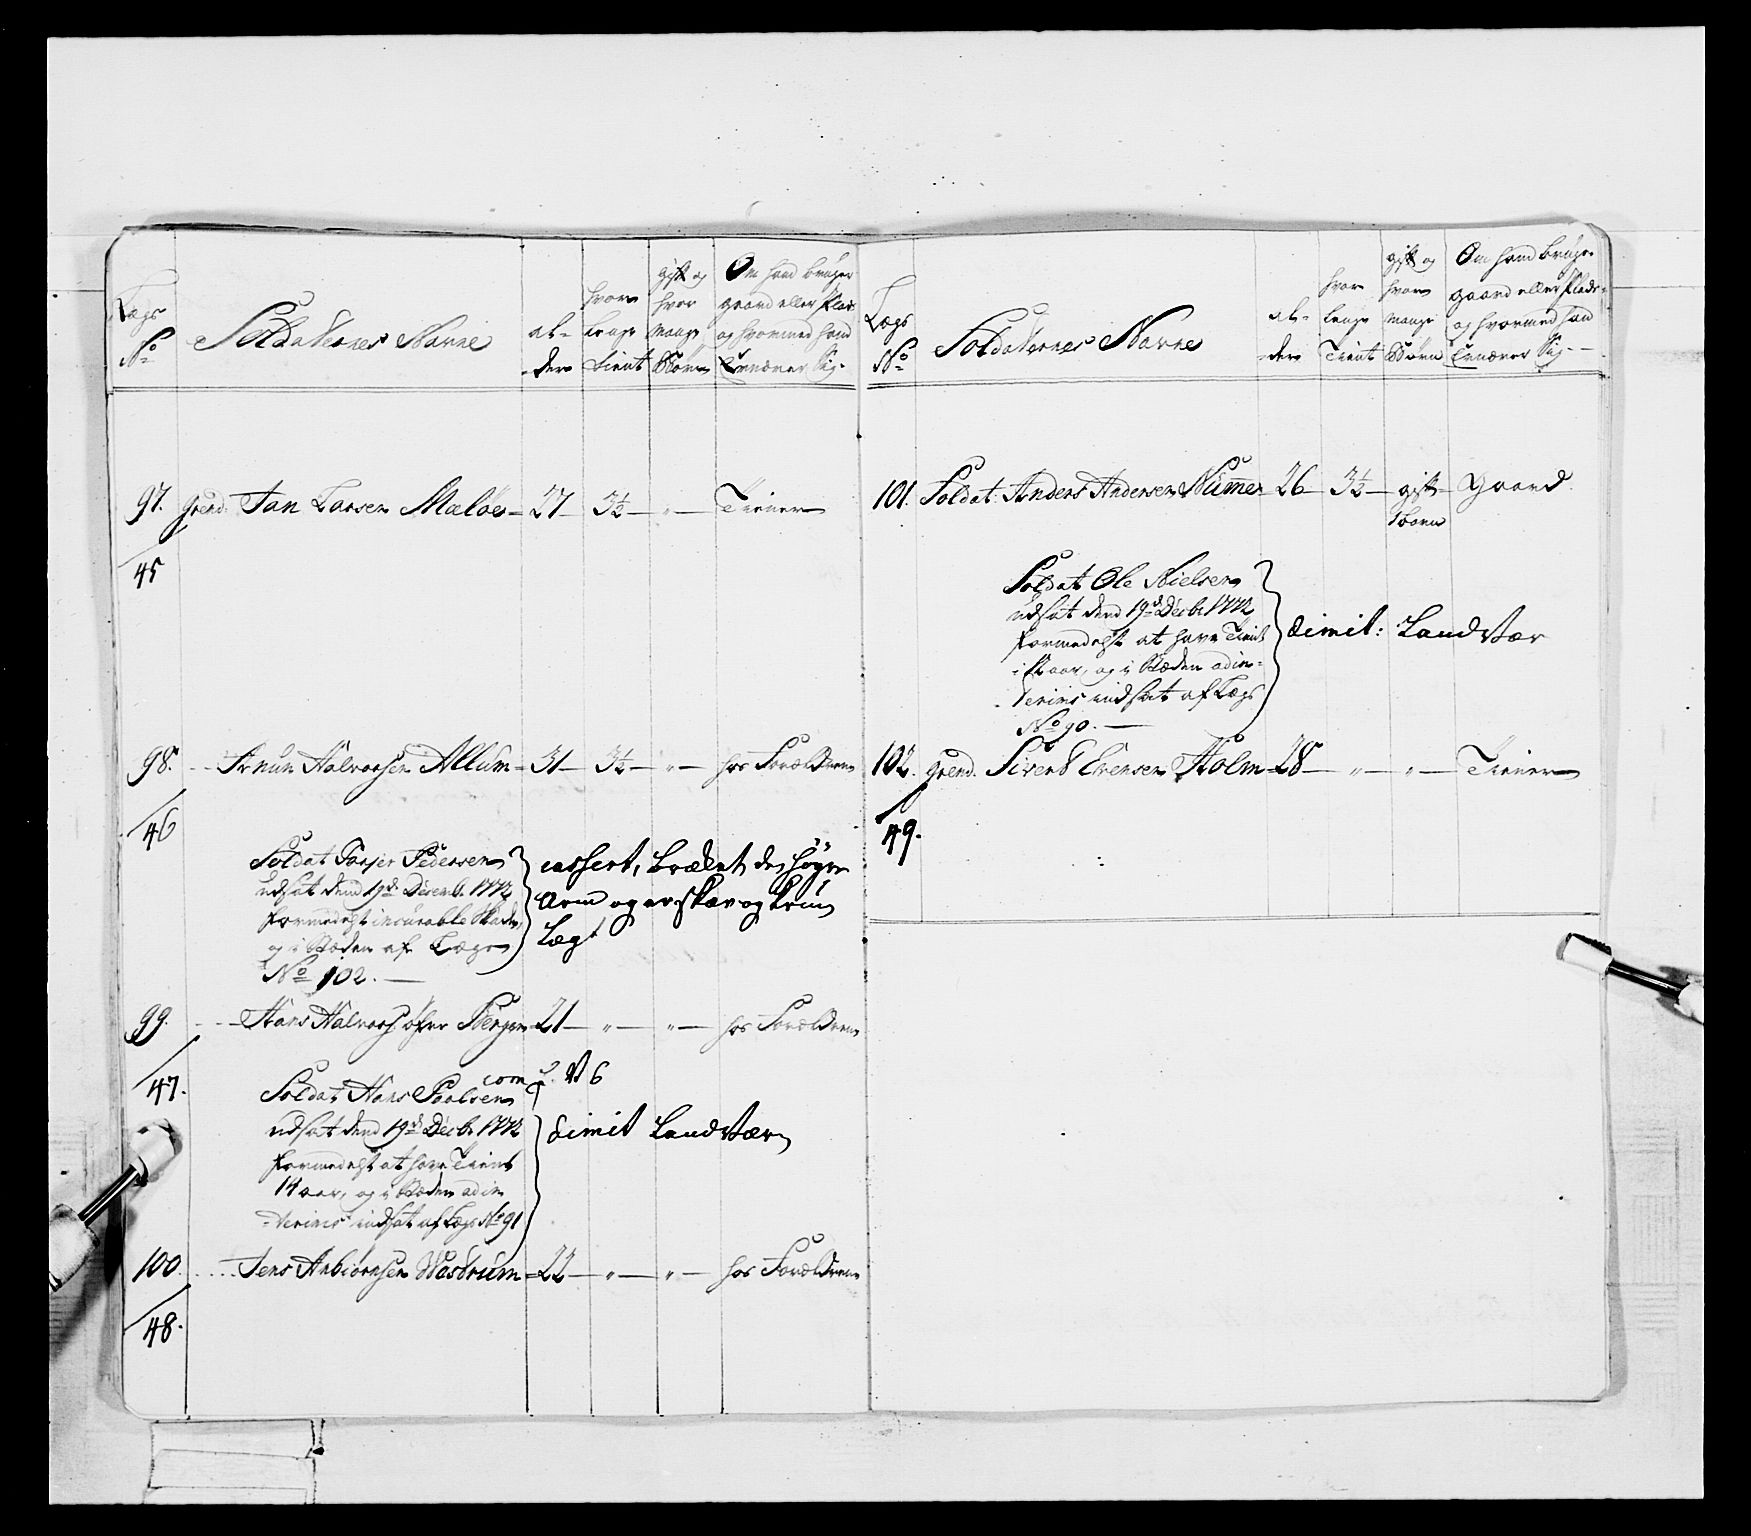 Lægs
No
Soldaternes Navne
al-
der
hvor
lenge
tient
gift og
hvor
mange
Børn
Om hand bruger
gaard eller Plads
og hvormed hand
Ernærer Sig.
97. Grend. Jan Larsen Maløe 27 3½ " Tiener
45
98. Arnun Halvorsen Allum 31 3½ " hos Forældrene
46
Soldat Torger Pedersen
udsat dend 19de Decemb. 1772
formedelst incurable Skade,
og i Stæden af Lægs
No 102.
cassert, brækket des højre
Arm og er skæv og krum
lagt
99. Hans Halvors. øfre Bergen 21 " " hos Forældrene
47.
Soldat Hans Poulsen
udsat dend 19de Decb. 1772
formedelst at have Tient
14 aar, og i Stæden adin-
terims indsat af Lægs No 91
com
No 6
dimit Landvær
100. Jens Anbiørnsen Wostrum 22 " " hos Forældrene
48.
Lægs
No
Soldaternes Navne
al-
der
hvor
lenge
Tient
gift og
hvor
mange
Børn
Om hand bruger
gaard eller Plads
og hvormed hand
Ernærer Sig.
101. Soldat Anders Andersen Nummer 26 3½ gift Gaard
1 barn
Soldat Ole Nielsen
udsat dend 19de Decb. 1772
formedelst at have Tient
aar, og i Stæden adin-
terims indsat af Lægs
No 90.
dimit: Landvær
102. Grend. Sivert Evensen Holm 28 " " Tiener
49.